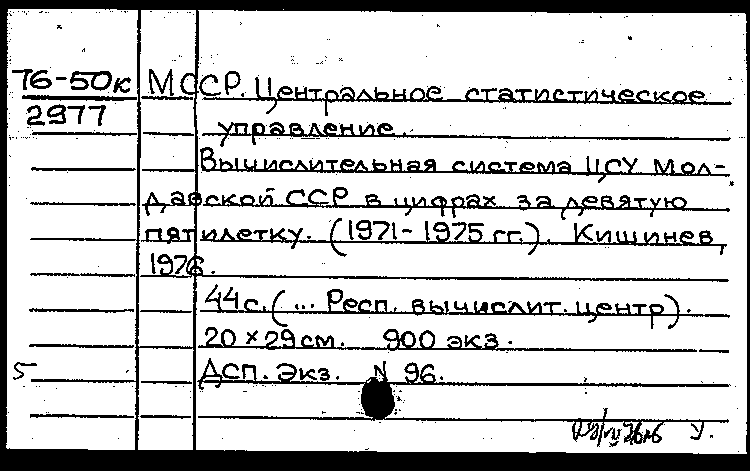 76-50к МССР. Центральное статистическое
2977 управление.
Вычислительная система ЦСУ Мол-
давской ССР в цифрах за девятую
пятилетку. (1971-1975 гг.). Кишинев,
1976.
44 с. (... Респ. вычислит. центр).
20 × 29 см. 900 экз.
5 ДСП. Экз. N 96.
У.